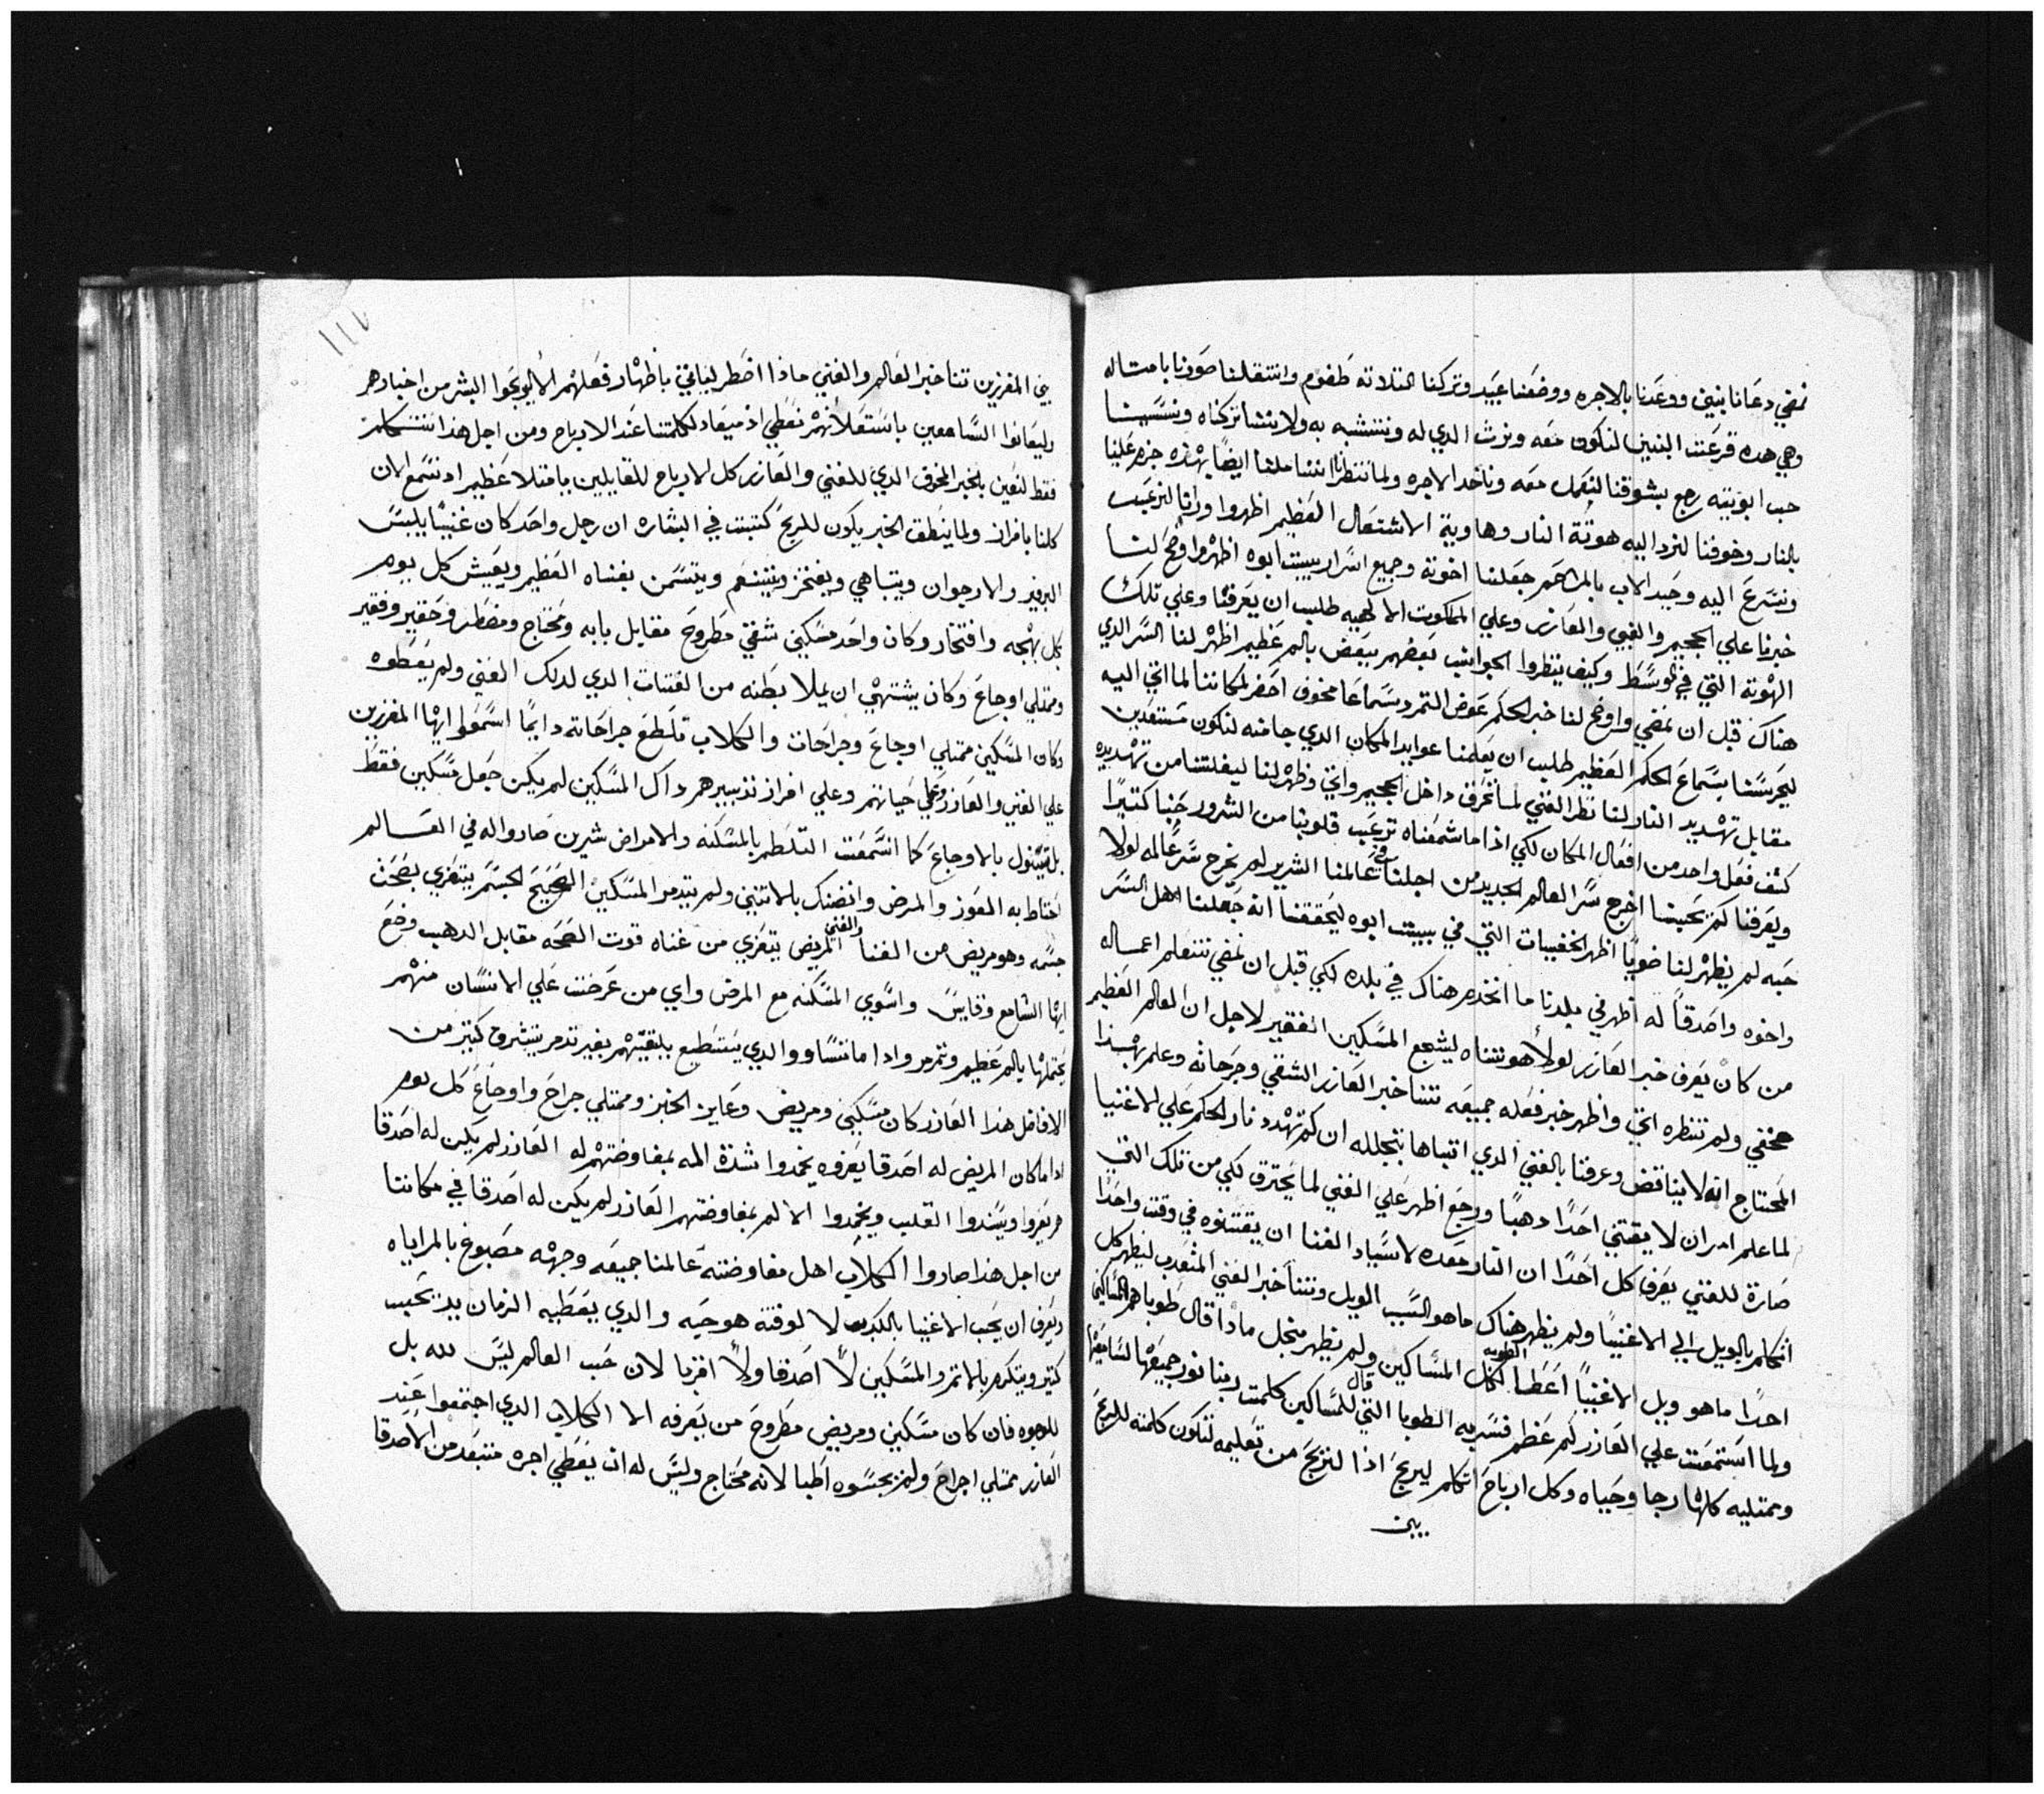 نمضي دعانا بنيني ووعدنا بالاجره ووضعنا عبيد وتركنا التلاته طغوم وانتقلنا صورنا بامتاله
وهي هده قرعت البنين لنكون معه ونرث الدي له ونتشبه به ولا نتشا تركناه ونسينا
حب ابويته رجع يشوقنا لنعمل معه وناخد الاجره ولما ننتظرنا ايضا بهذه جزم علينا
بالنار وخوفنا لنرد اليه هوتة النار وهاوية الاشتعال العظيم اظهروا ورانا لنرعب
ونسرع اليه وحيد الاب بالمراحم جعلنا اخوته وجميع اسرار بيت ابوه اظهر واوضح لنا
خبرنا علي الجحيم والغني والعازر وعلي الملكوت الالهيه طلب ان يعرفنا وعلي تلك
الهوته التي في الوسط وكيف ينظروا الجوانب بعضهم ببعض بالم عظيم اظهر لنا السر الدي
هناك قبل ان نمضي واوضح لنا خبر الحكم عوض التمرد سماعا مخوف احضر لمكاننا لما اتي اليه
ليحرسنا بسماع الحكم العظيم طلب ان يعلمنا عوايد المكان الدي جا منه لنكون مستعدين
مقابل تهديد النار لنا نظر الغني لما تحرق داخل الجحيم واتي وظهر لنا ليفلتنا من تهديده
كشف فعل واحد من افعال المكان لكي اذا ما سمعناه ترعب قلوبنا من الشرور حبنا كتيرا
ويعرفنا كم يحبنا اخرج سر العالم الجديد من اجلنا في عالمنا الشرير لم يخرج سر عالمه لولا
حبه لم يظهر لنا ضويا اظهر الخفيات التي في بيت ابوه ليحققنا انه جعلنا اهل السر
واخوه واصدقا له اظهر في بلدنا ما انخدم هناك في بلده لكي قبل ان نمضي نتعلم اعماله
من كان يعرف خبر العازر لولا هو تتناه ليشجع المسكين الفقير لاجل ان العالم العظيم
مخفي ولم تنظره اتي واظهر خبر فعله جميعه تتنا خبر العازر الشقي وجرحاته وعلم بهذا
المحتاج انه لا يتناقض وعرفنا بالغني الدي اتباها بتجلله ان كم تهدد نار الحكم علي الاغنيا
لما علم امر ان لا يقتني احدا دهبا ورجع اظهر علي الغني لما يحترق لكي من تلك التي
صارة للغني يعرف كل احدا ان النار معده لاسياد الغنا ان يقتنوه في وقت واحدا
اتكلم بالويل الي الاغنيا ولم يظهر هناك ما هو السبب الويل وتتنا خبر الغني المتعدب ليظهر كل
احدا ما هو ويل الاغنيا اعطا الطوبه لكل المساكين ولم يظهر منجل ماذا قال طوباهم المساكين
ولما استمعت علي العازر كم عظم فسر به الطوبا التي قال للمساكين كلمت ربنا نور جميعها لسامعيها
وممتليه كلها رجا وحياه وكل ارباح اتكلم ليربح اذا لنربح من تعليمه لتكون كلمته للربح
بين
١١١
بني المفرزين تتنا خبر العالم والغني ماذا اضطر ليباني باظهار فعلهم الا ليوبخوا البشر من اخبارهم
وليعانوا السامعين باستعلانهم نعطي اذ ميعاد لكلمتنا عند الارباح ومن اجل هذا نتكلم
فقط لنعين بالخبر المخوف الدي للغني والعازر كل الارباح للقايلين بامتلا عظيم اد نسمع الان
كلنا بافراز ولما ينطق الخبر يكون للربح كتبت في البشاره ان رجل واحد كان غنيا يلبس
البرفير والارجوان ويتباهي ويفتخر ويتنعم ويتسمن بغناه العظيم ويعيش كل يوم
بكل بهجه وافتخار وكان واحد مسكين شقي مطروح مقابل بابه ومحتاج ومضطر وحقير وفقير
وممتلي اوجاع وكان يشتهي ان يملا بطنه من الفتات الدي لدلك الغني ولم يعطوه
وكان المسكين ممتلي اوجاع وجراحات والكلاب تلطع جراحاته دايما اسمعوا ايها المفرزين
علي الغني والعازر وعلي حياتهم وعلي افراز تدبيرهم داك المسكين لم يكن جعل مسكين فقط
بل مبتول بالاوجاع كما انسمعت التلطم بالمسكنه والامراض شرين صاروا له في العالم
احتاط به العوز والمرض وانضنك بالاتنين ولم يتدمر المسكين الصحيح الجسم يتعزي بصحت
جسمه وهو مريض من الغنا والغني المريض يتعزي من غناه قوت الصحه مقابل الدهب وضع
ايها السامع وقايس واسوي المسكنه مع المرض واي من عرضت علي الانسان منهم
يحتملها بالم عظيم وتمرمر وادا ما تساوو والدي يستطيع يلتقيهم بغير تدمر يتشرف كتير من
الافاضل هذا العازر كان مسكين ومريض وعايز الخبز وممتلي جراح واوجاع كل يوم
ادا ما كان المريض له اصدقا يعزوه يخمدوا شدة المه بمفاوضتهم له العازر لم يكن له اصدقا
هم يعزوا ويسندوا القلب ويخمدوا الالم بمفاوضتهم العازر لم يكن له اصدقا في مكاننا
من اجل هذا صاروا الكلاب اهل مفاوضته عالمنا جميعه وجهه مصبوغ بالمراياه
ويعرف ان يحب الاغنيا بالكدب لا لوقته هو حيه والدي يعطيه الزمان يد يحب
كتير ويتكرم بالاتمر والمسكين لا اصدقا ولا اقربا لان حب العالم ليس لله بل
للوجوه فان كان مسكين ومريض مطروح من يعرفه الا الكلاب الدي اجتمعوا عند
العازر ممتلي اجراح ولم يجسوه اطبا لانه محتاج وليس له ان يعطي اجره متبعد من الاصدقا